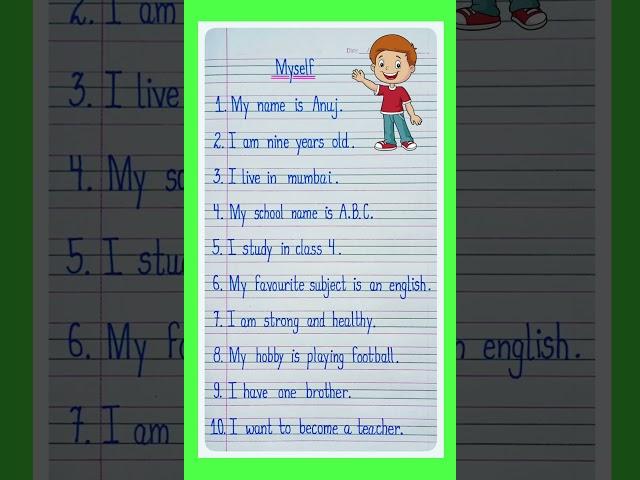 Date
Myself
1. My name is Anuj.
2. I am nine years old.
3. I live in mumbai.
4. My school name is A.B.C.
5. I study in class 4.
6. My favourite subject is an english.
7. I am strong and healthy.
8. My hobby is playing football.
9. I have one brother.
10. I want to become a teacher.
2. I am
3. I live
4. My sc
5. I stu
6. My f
7. I am
english.